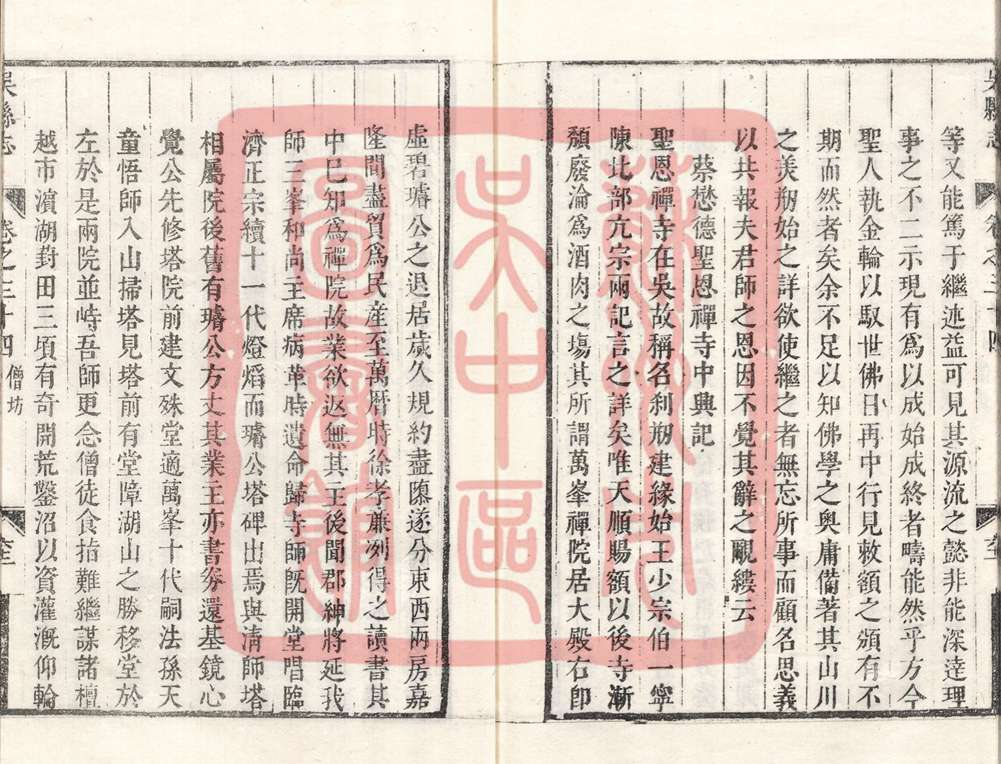 等又能篤于繼述益可見其源流之懿非能深達理
事之不二示現有爲以成始成終者疇能然乎方今
聖人執金輪以馭世佛日再中行見敕額之頒有不
期而然者矣余不足以知佛學之奥庸備著其山川
之美剏始之詳欲使繼之者無忘所事而顧名思義
以共報夫君師之恩因不覺其辭之覼縷云
蔡懋德聖恩禪寺中興記
聖恩禪寺在吳故稱名刹剏建緣始王少宗伯一寧
陳比部亢宗兩記言之詳矣唯天順賜額以後寺漸
頹廢淪爲酒肉之塲其所謂萬峯禪院居大殿右卽
虛碧璿公之退居歲久規約盡隳遂分東西兩房嘉
隆間盡貿爲民産至萬厯時徐孝廉冽得之讀書其
中巳知爲禪院故業欲返無其主後聞郡紳將延我
師三峯和尚主席病革時遺命歸寺師旣開堂唱臨
濟正宗續十一代燈熖而璿公塔碑出焉與清師塔
相屬院後舊有璿公方丈其業主亦書劵還基鏡心
覺公先修塔院前建文殊堂適萬峯十代嗣法孫天
童悟師入山掃塔見塔前有堂障湖山之勝移堂於
左於是兩院並峙吾師更念僧徒食指難繼謀諸檀
越市濵湖葑田三頃有奇開荒鑿沼以資灌漑仰輪
吳縣志
卷之三十四
僧坊
蘇州市
吳中區
圖書館